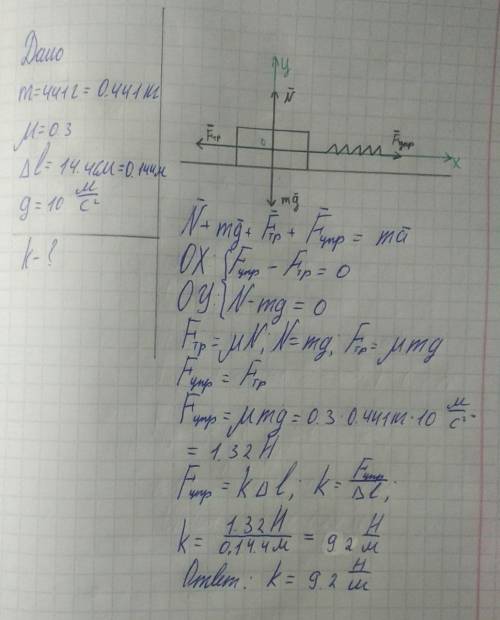 Дано
m=441г=0.441кг
μ=0.3
Δl=14.4см=0.144м
g=10 м/с²
k-?
y
N̄
F̄тр
0
F̄упр
x
mḡ
N̄+mḡ+F̄тр+F̄упр=mā
OX: {Fупр-Fтр=0
OY: {N-mg=0
Fтр=μN; N=mg; Fтр=μmg
Fупр=Fтр
Fупр=μmg=0.3·0.441кг·10 м/с²=
=1.32Н
Fупр=kΔl; k=Fупр/Δl;
k=1.32Н/0,14.4м=9.2 Н/м
Ответ: k=9.2 Н/м